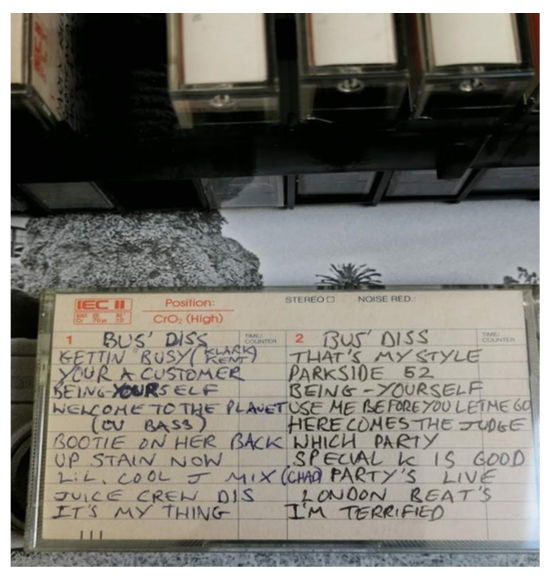 IEC II
Position:
CrO₂ (High)
STEREO
NOISE RED.:
1
BUS' DISS
TIME/
COUNTER
GETTIN' BUSY (KLARK
KENT)
YOUR A CUSTOMER
BEING-YOURSELF
WELCOME TO THE PLANET
(OU BASS)
BOOTIE ON HER BACK
UP STAIN NOW
L.L. COOL J MIX (CHAD)
JUICE CREW DIS
IT'S MY THING
2
BUS' DISS
TIME/
COUNTER
THAT'S MY STYLE
PARKSIDE 52
BEING-YOURSELF
USE ME BEFORE YOU LET ME GO
HERE COMES THE JUDGE
WHICH PARTY
SPECIAL K IS GOOD
PARTY'S LIVE
LONDON BEAT'S
I'M TERRIFIED